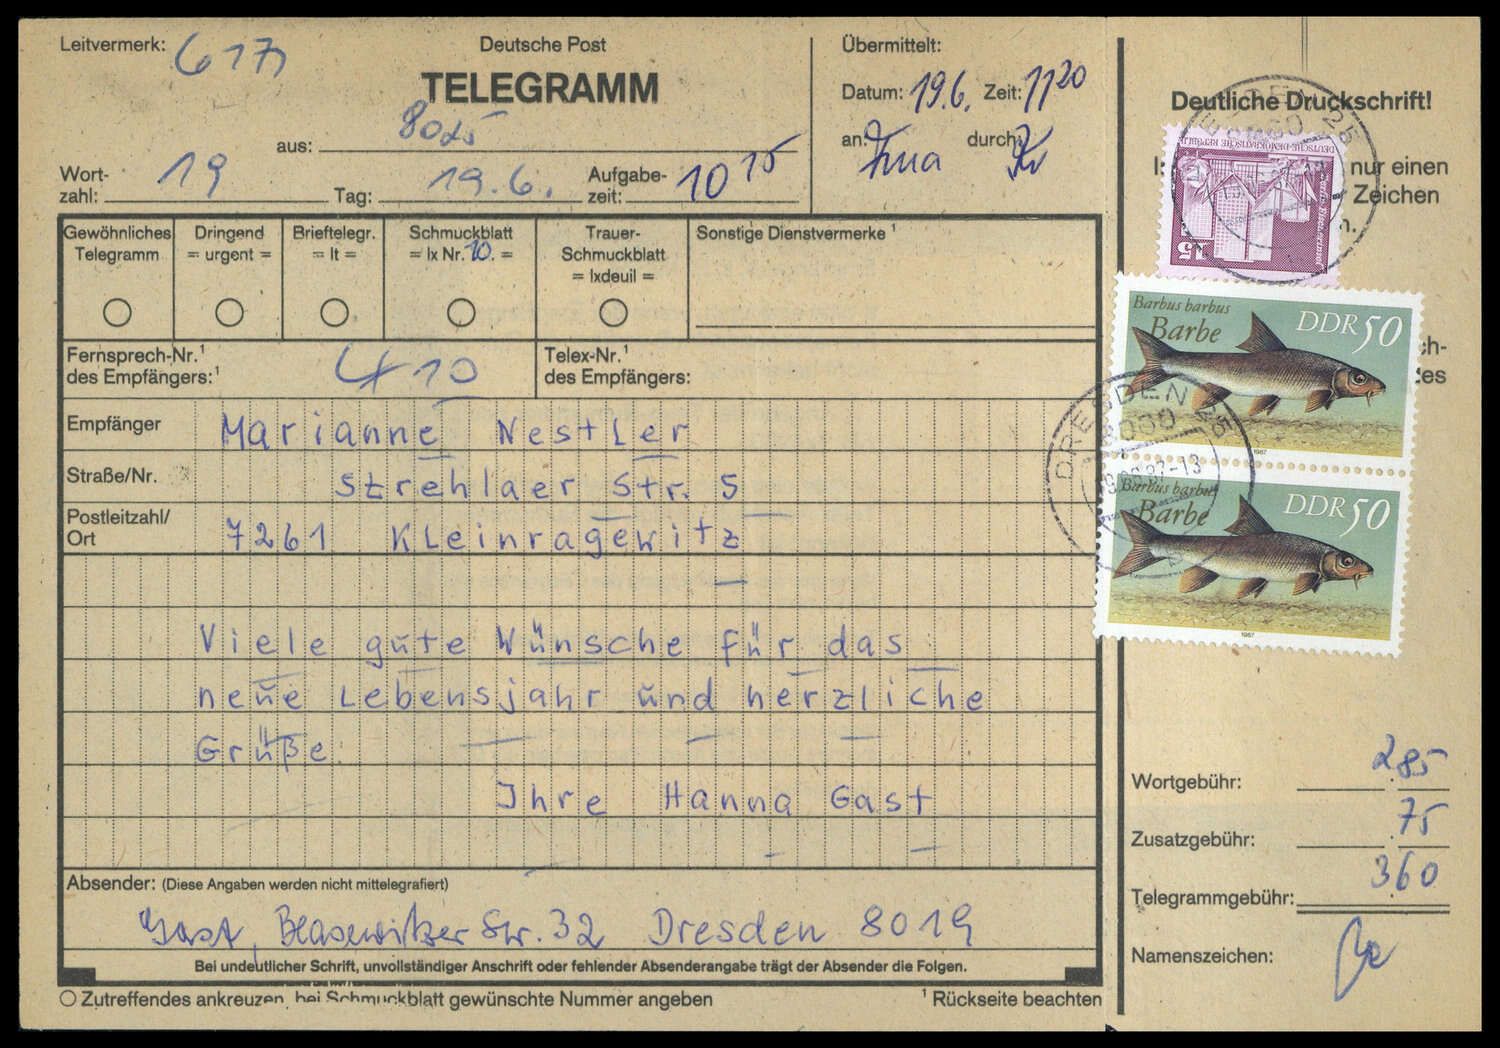 Leitvermerk: 617
Deutsche Post
TELEGRAMM
aus: 8025
Wort-
zahl: 19
Tag: 19.6.
Aufgabe-
zeit: 10 15
Übermittelt:
Datum: 19.6. Zeit: 11 20
an: durch:
Deutliche Druckschrift!
nur einen
Zeichen
n.
DEUTSCHE DEMOKRATISCHE REPUBLIK
15
Gewöhnliches
Telegramm
Dringend
= urgent =
Brieftelegr.
= lt =
Schmuckblatt
= lx Nr. 10. =
Trauer-
Schmuckblatt
= lxdeuil =
Sonstige Dienstvermerke ¹
Barbus barbus
Barbe
DDR 50
1987
ch-
tes
Fernsprech-Nr.¹
des Empfängers:¹ 410
Telex-Nr.¹
des Empfängers:
Empfänger Marianne Nestler
Straße/Nr. Strehlaer Str. 5
Postleitzahl/
Ort 7261 Kleinragewitz
DRESDEN 25
8030
Barbus barbus
Barbe
DDR 50
1987
Viele gute Wünsche für das
neue Lebensjahr und herzliche
Grüße
Ihre Hanna Gast
Wortgebühr: 2.85
Zusatzgebühr: .75
Telegrammgebühr: 3 60
Namenszeichen:
Absender: (Diese Angaben werden nicht mittelegrafiert)
Gast, Blasewitzer Str. 32 Dresden 8019
Bei undeutlicher Schrift, unvollständiger Anschrift oder fehlender Absenderangabe trägt der Absender die Folgen.
Zutreffendes ankreuzen, bei Schmuckblatt gewünschte Nummer angeben
¹ Rückseite beachten